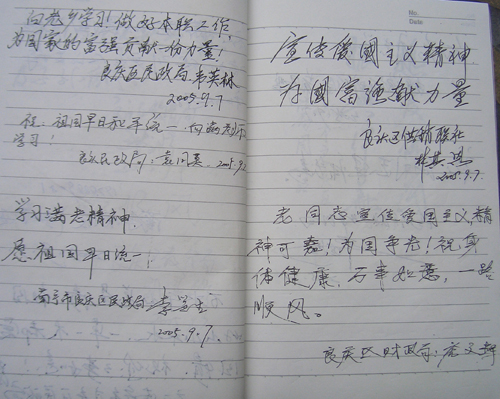 向老乡学习！做好本职工作，
为国家的富强贡献一份力量！
良庆区民政局 韦英林
2005.9.7
祖国早日和平统一，向
学习！
良庆民政局：袁 2005.9.
学习满老精神，
愿祖国早日统一！
南宁市良庆区民政局 李
2005.9.7.
No.
Date
宣传爱國主义精神
为國富强献力量
良庆区供销联社
林
2005.9.7.
老同志宣传爱国主义精
神可嘉！为国争光！祝身
体健康，万事如意，一路
顺风。
良庆区财政局：